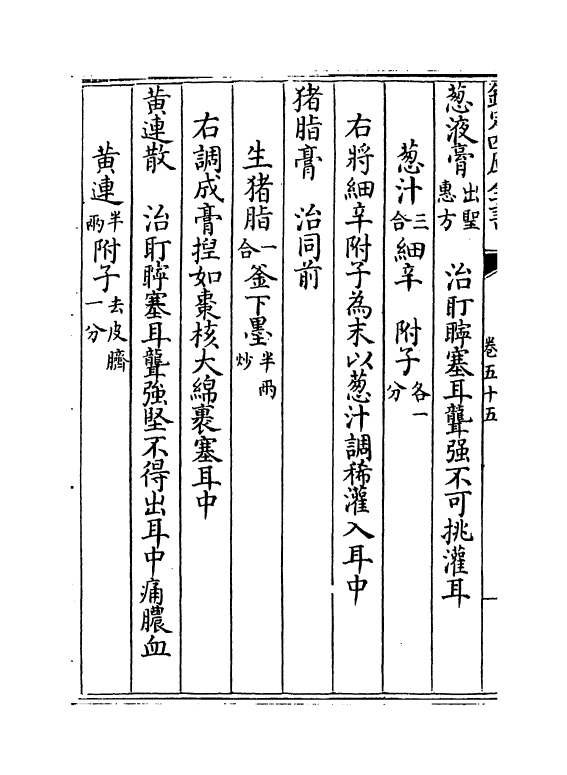 欽定四庫全書
卷五十五
葱液膏出聖惠方 治耵聹塞耳聾强不可挑灌耳
葱汁三合 細辛 附子各一分
右將細辛附子為末以葱汁調稀灌入耳中
猪脂膏 治同前
生猪脂一合 釜下墨半兩炒
右調成膏揑如棗核大綿裹塞耳中
黃連散 治耵聹塞耳聾強堅不得出耳中痛膿血
黃連半兩 附子去皮臍一分